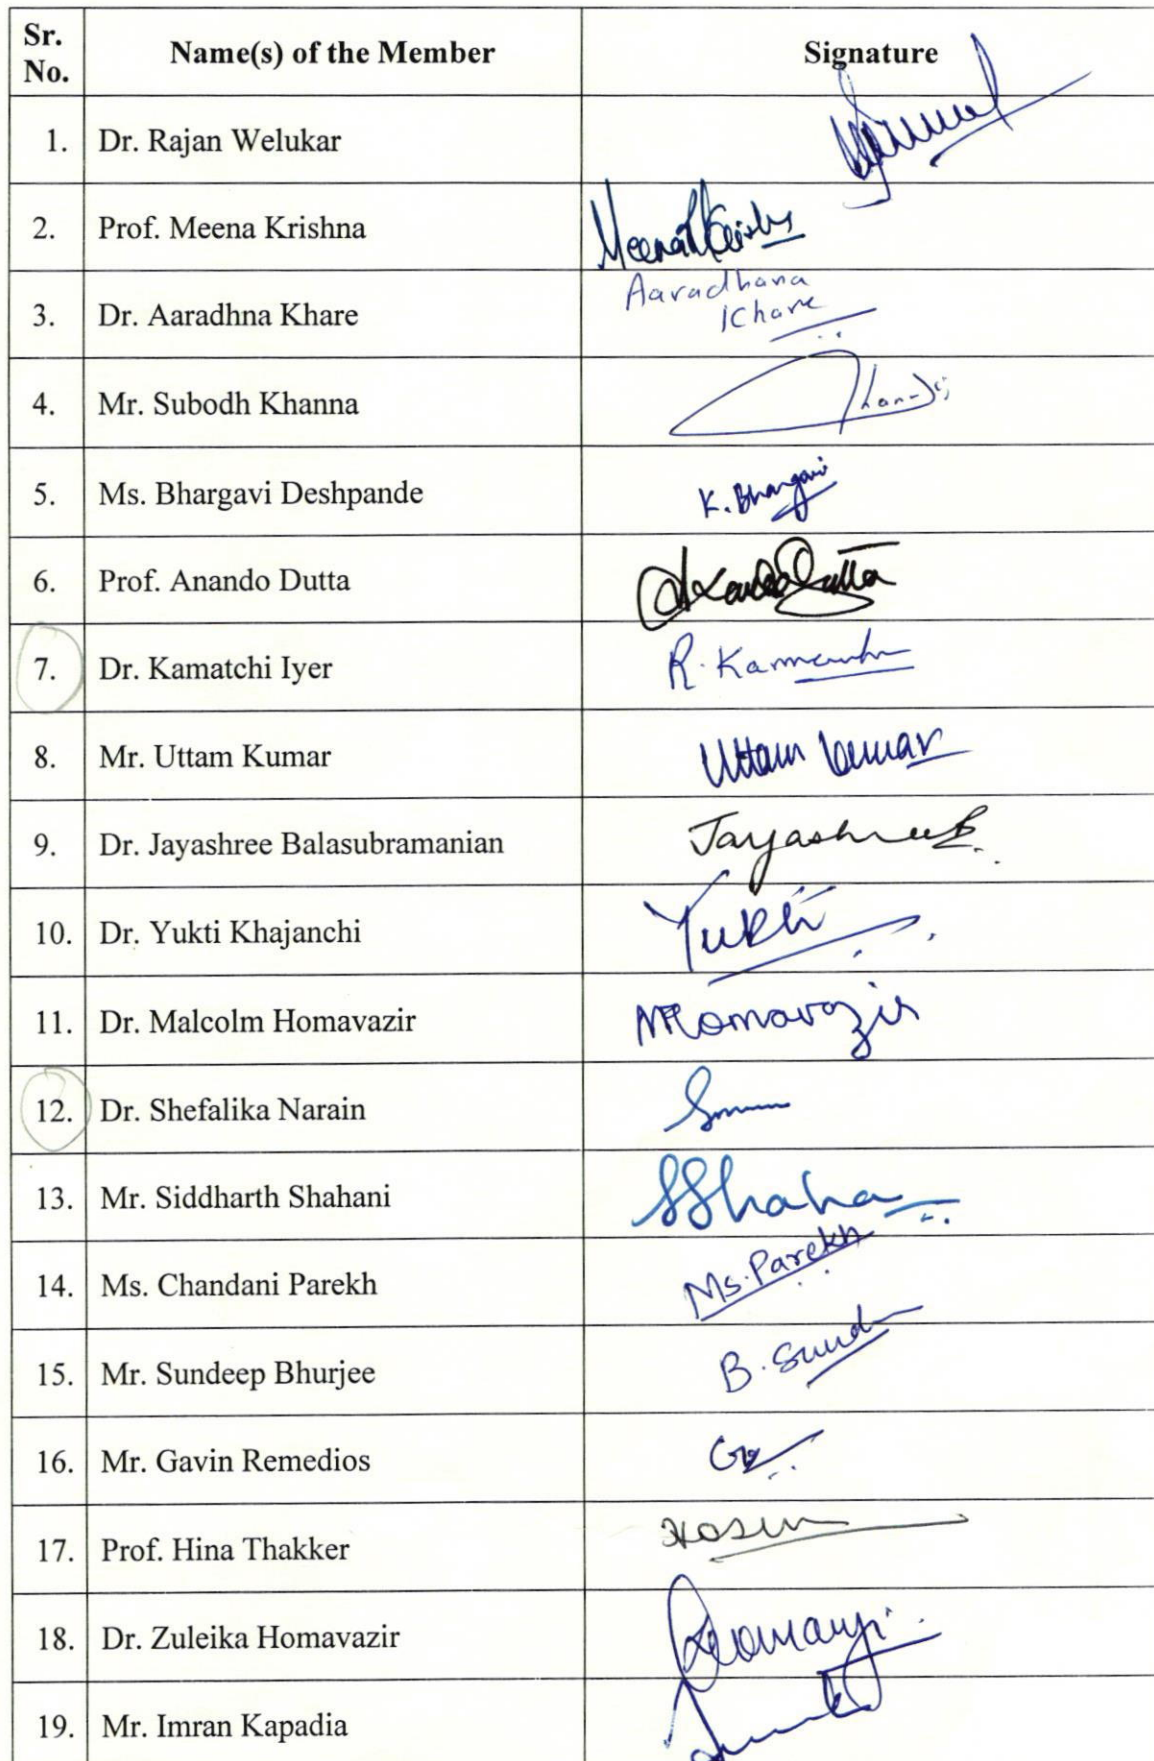 Sr. No. Name(s) of the Member Signature
1. Dr. Rajan Welukar
2. Prof. Meena Krishna Meena Krishna
3. Dr. Aaradhna Khare Aaradhana
Khare
4. Mr. Subodh Khanna
5. Ms. Bhargavi Deshpande K. Bhargavi
6. Prof. Anando Dutta Dutta
7. Dr. Kamatchi Iyer R.
8. Mr. Uttam Kumar Uttam Kumar
9. Dr. Jayashree Balasubramanian Jayashree B.
10. Dr. Yukti Khajanchi Yukti
11. Dr. Malcolm Homavazir MHomavazir
12. Dr. Shefalika Narain
13. Mr. Siddharth Shahani
14. Ms. Chandani Parekh Ms. Parekh
15. Mr. Sundeep Bhurjee B.
16. Mr. Gavin Remedios
17. Prof. Hina Thakker
18. Dr. Zuleika Homavazir
19. Mr. Imran Kapadia